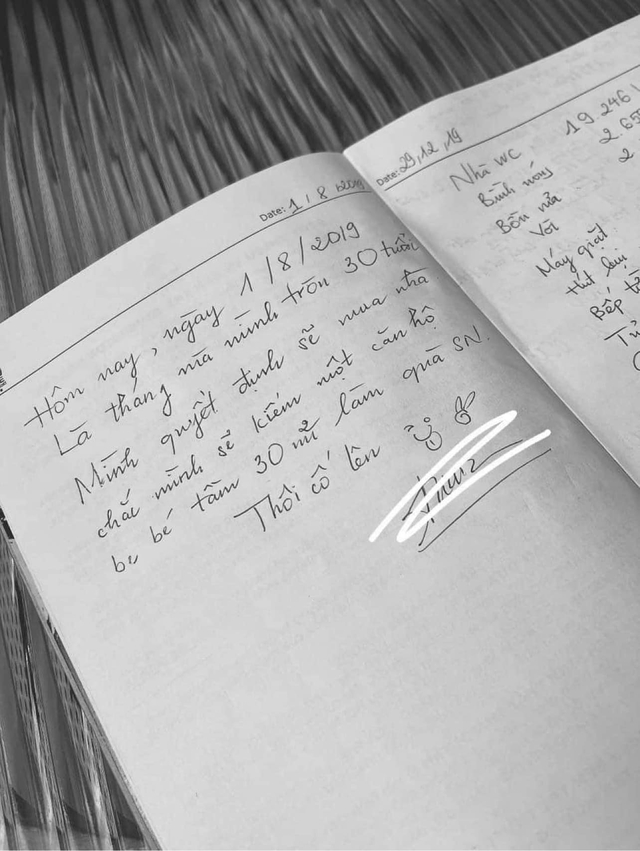 Date: 1 / 8 /2019
Hôm nay, ngày 1/8/2019
Là tháng mà mình tròn 30 tuổi
Mình quyết định sẽ mua nhà
chắc mình sẽ kiếm một căn hộ
be bé tầm 30 m² làm quà SN.
Thôi cố lên
Date: 29, 12, 19
Nhà wc 19.246
Bình nóng 2.65
Bồn rửa 2
Vòi
Máy giặt
Hút
Bếp